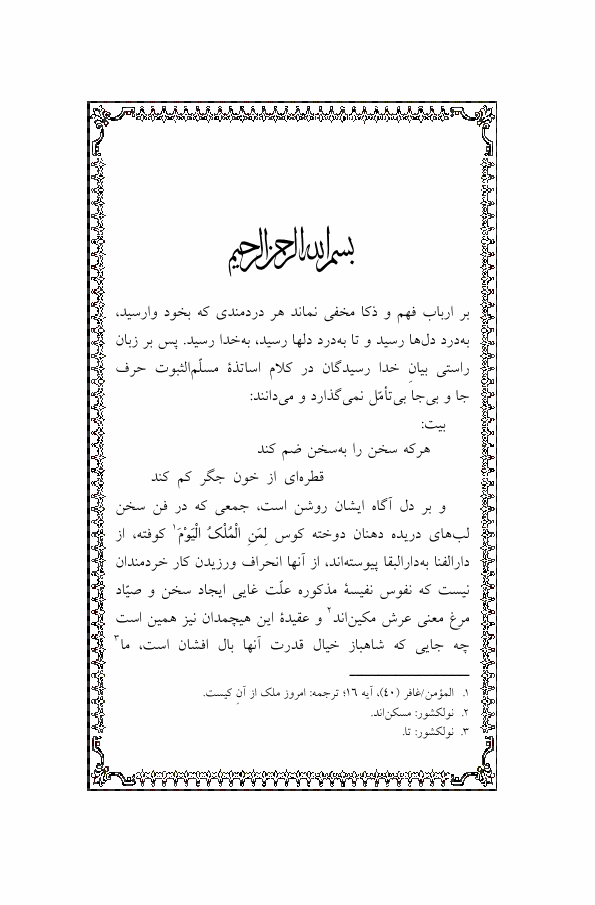 بسم الله الرحمن الرحیم
بر ارباب فهم و ذکا مخفی نماند هر دردمندی که بخود وارسید،
به‌درد دل‌ها رسید و تا به‌درد دلها رسید، به‌خدا رسید. پس بر زبان
راستی بیانِ خدا رسیدگان در کلام اساتذهٔ مسلّم‌الثبوت حرف
جا و بی‌جا بی‌تأمّل نمی‌گذارد و می‌دانند:
بیت:
هرکه سخن را به‌سخن ضم کند
قطره‌ای از خون جگر کم کند
و بر دل آگاه ایشان روشن است، جمعی که در فن سخن
لب‌های دریده دهنان دوخته کوس لِمَنِ الْمُلْکُ الْیَوْمَ۱ کوفته، از
دارالفنا به‌دارالبقا پیوسته‌اند، از آنها انحراف ورزیدن کار خردمندان
نیست که نفوس نفیسهٔ مذکوره علّت غایی ایجاد سخن و صیّاد
مرغ معنی عرش مکین‌اند۲ و عقیدهٔ این هیچمدان نیز همین است
چه جایی که شاهباز خیال قدرت آنها بال افشان است، ما۳
۱. المؤمن/غافر (۴۰)، آیه ۱۶؛ ترجمه: امروز ملک از آنِ کیست.
۲. نولکشور: مسکن‌اند.
۳. نولکشور: تا.